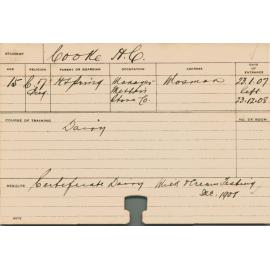 STUDENT Cooke A.C.
AGE RELIGION PARENT OR GUARDIAN OCCUPATION ADDRESS DATE OF ENTRANCE
15 C. of Eng. Manager Mosman 23.1.07
Store Co. left
23.12.08
COURSE OF TRAINING NO. OR ROOM
Dairy
RESULTS Certificate Dairy Milk & Cream Testing
Dec. 1908
NOTE